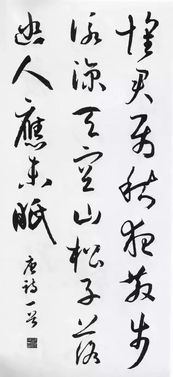 怀君属秋夜散步
咏凉天空山松子落
幽人应未眠
唐诗一首